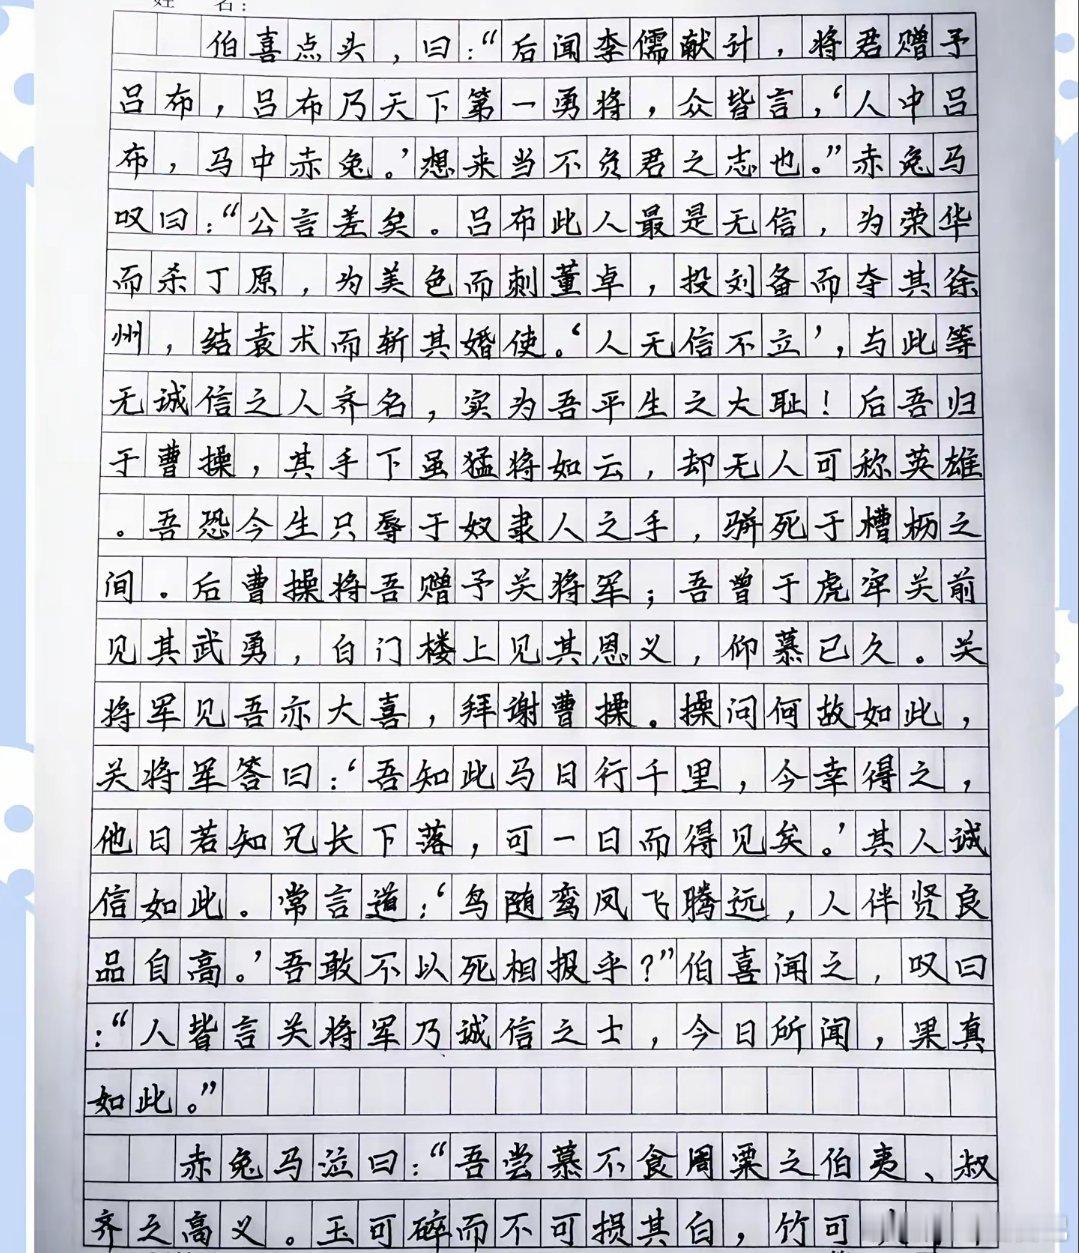 姓 名：
伯喜点头，曰：“后闻李儒献计，将君赠予
吕布，吕布乃天下第一勇将，众皆言，‘人中吕
布，马中赤兔。’想来当不负君之志也。”赤兔马
叹曰：“公言差矣。吕布此人最是无信，为荣华
而杀丁原，为美色而刺董卓，投刘备而夺其徐
州，结袁术而斩其婚使。‘人无信不立’，与此等
无诚信之人齐名，实为吾平生之大耻！后吾归
于曹操，其手下虽猛将如云，却无人可称英雄
。吾恐今生只辱于奴隶人之手，骈死于槽枥之
间。后曹操将吾赠予关将军；吾曾于虎牢关前
见其武勇，白门楼上见其恩义，仰慕已久。关
将军见吾亦大喜，拜谢曹操。操问何故如此，
关将军答曰：‘吾知此马日行千里，今幸得之，
他日若知兄长下落，可一日而得见矣。’其人诚
信如此。常言道：‘鸟随鸾凤飞腾远，人伴贤良
品自高。’吾敢不以死相报乎？”伯喜闻之，叹曰
：“人皆言关将军乃诚信之士，今日所闻，果真
如此。”
赤兔马泣曰：“吾尝慕不食周粟之伯夷、叔
齐之高义。玉可碎而不可损其白，竹可